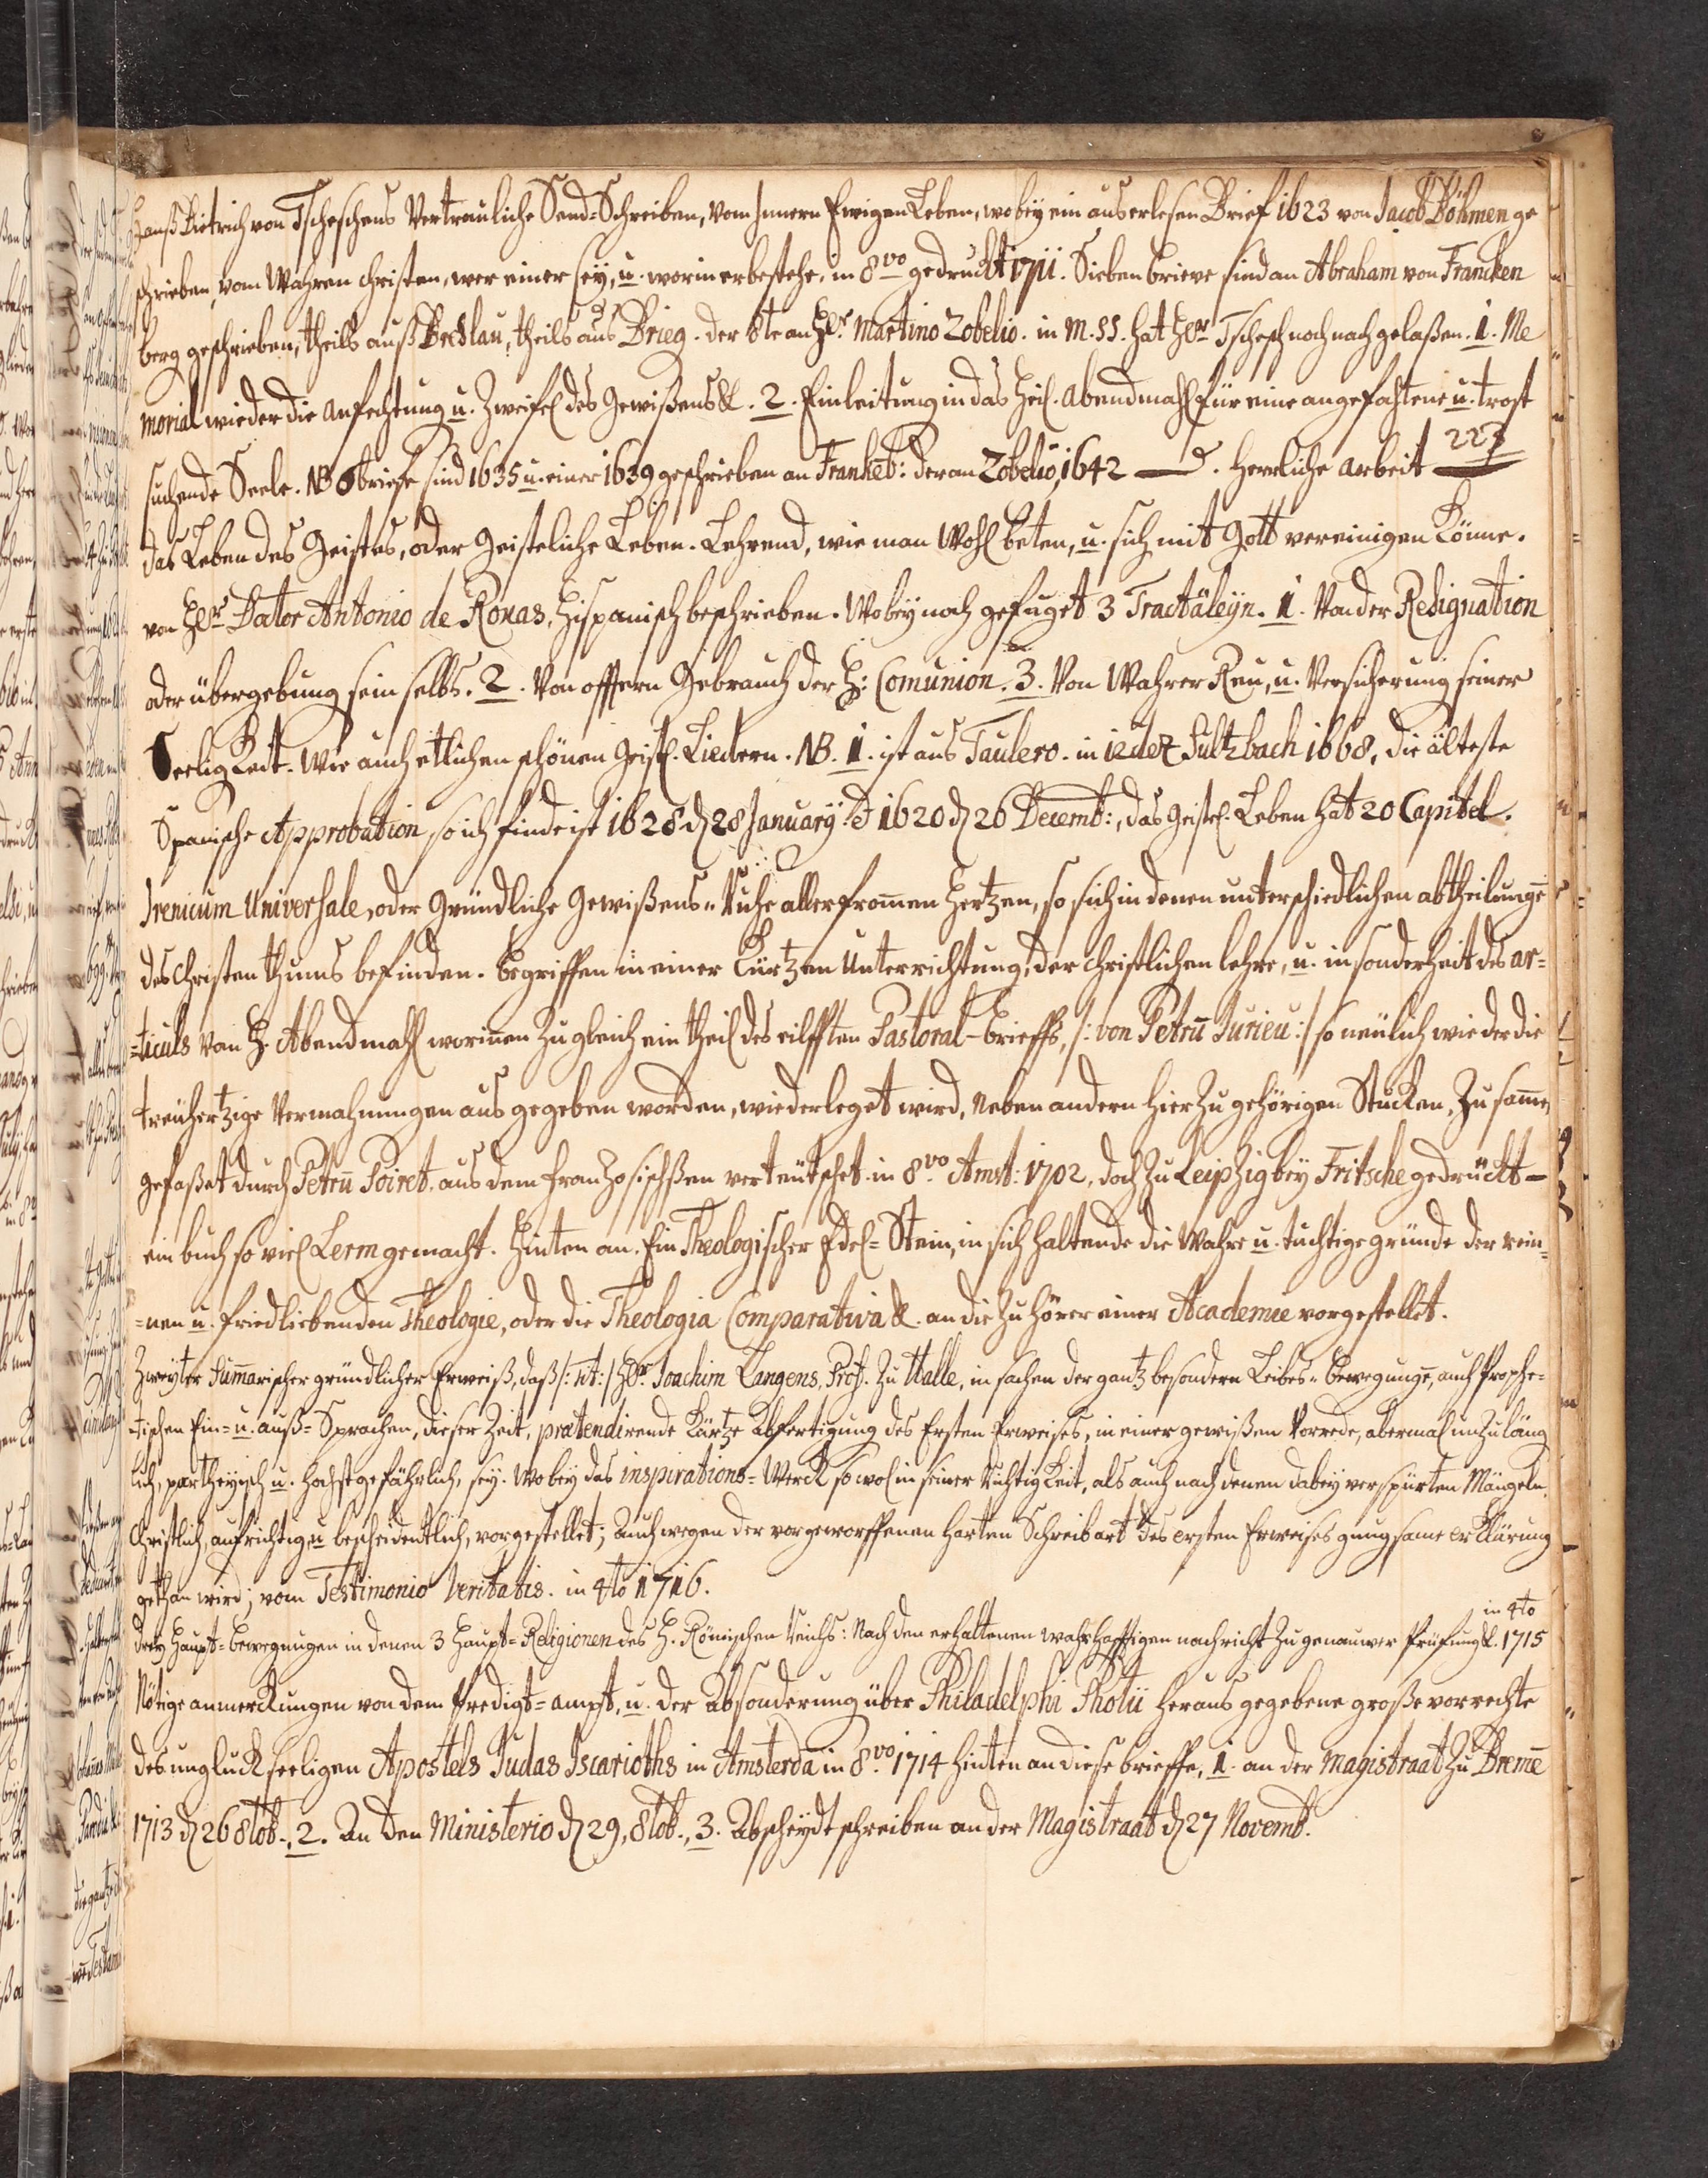 Hanß Dietrich von Tscheschens Vertrauliche Send=Schreiben, vom Innern Ewigen Leben, wobey ein auserlesen Brief 1623 von Jacob Böhmen ge
schrieben, vom Wahren Christen, wer einer sey, u. worin er bestehe, in 8vo gedruckt 1711. Sieben brieve sind an Abraham von Francken
berg geschrieben, theils auß Breslau, theils aus Brieg. der 8te an Hr. Martino Zobelio. in M.SS. hat Hr. Tschesch noch nach gelaßen. 1. Me
morial wieder die Anfechtung u. Zweifel des Gewißens &. 2. Einleitung in das Heil. Abendmahl für eine angefochtene u. trost
suchende Seele. NB 6 briefe sind 1635 u. einer 1639 geschrieben an Frankēb: der an Zobelio, 1642. Herrliche Arbeit 223
das Leben des Geistes, oder Geisteliche Leben. Lehrend, wie man Wohl beten, u. sich mit Gott vereinigen könne.
von Hr. Doctor Antonio de Roxas, Hispanisch beschrieben. Wobey noch gefüget 3 Tractäleyn. 1. Von der Resignation
oder übergebung sein selbs. 2. Von offtern Gebrauch der H: Comunion. 3. Von Wahrer Reu, u. Versicherung seiner
Seeligkeit. Wie auch etlichen schönen Geistl. Liedern. NB. 1. ist aus Taulero. in 12dez Sultzbach 1668, die älteste
Spanische Approbation, so ich finde ist 1628 d 28 January. & 1620 d 26 Decemb:, das Geistl. Leben hat 20 Capitel.
Irenicum Universale, oder Gründliche Gewißens=Ruhe aller from̄en Hertzen, so sich in denen unterschiedlichen abtheilungē
des Christenthums befinden. begriffen in einer Kürtzen Unterrichtung, der Christlichen lehre, u. insonderheit des ar=
=ticuls Von H. Abendmahl worinnen zugleich ein theil des eilfften Pastoral-brieffs, /: von Petrū Jurieu :/ so neulich wieder die
treuhertzige Vermahnungen aus gegeben worden, wiederleget wird, Neben andern hier zu gehörigen Stucken, Zusam̄en
gefaßet durch Petrū Poiret. aus dem Franzosischßen verteutschet. in 8vo. Amst: 1702, doch zu Leipzig bey Fritsche gedruckt -
ein buch so viel Lerm gemacht. Hinten an. Ein Theologischer Edel=Stein, in sich haltende die Wahre u. tüchtige gründe der rein=
=nen u. friedliebenden Theologie, oder die Theologia Comparativa &. an die Zuhörer einer Academie vorgestellet.
Zweyter Sum̄arischer gründlicher Erweiß, daß /: tit: / Hr. Joachim Langens, Prof. zu Halle, in sachen der gantz besondern Leibes=bewegungē, auch Prophe=
=tischen Ein= u. auß=Sprachen, dieser Zeit, prætendirende Kürtze Abfertigung des Ersten Erweises, in einer gewißen Vorrede, abermal unzuläng
lich, partheyisch u. höchstgefährlich, sey. Wobey das inspirations=Werck so wol in seiner Richtigkeit, als auch nach denen dabey verspürten Mängeln
Christlich, aufrichtig u. bescheidentlich, vorgestellet; Auch wegen der vorgeworffenen harten Schreibart des ersten Erweises gnugsame erklärung
gethan wird; vom Testimonio Veritatis. in 4to 1716.
in 4to
drey Haupt=bewegungen in denen 3 Haupt=Religionen des H. Römischen Reichs: Nach den erhaltenen wahrhafftigen nachricht zu genauwer Prüfung &. 1715
Nötige anmerckungen von dem Predigt=ampt, u. der Absonderung über Philadelphi Photii heraus gegebene große vorrechte
des unglückseeligen Apostels Judas Iscarioths in Amsterdā in 8vo. 1714 hinten an diese brieffe, 1. an der Magistraat zu Bremē
1713 d 26 8tob., 2. An den Ministerio d 29, 8tob., 3. Abscheydt schreiben an der Magistraat d 27 Novemb.